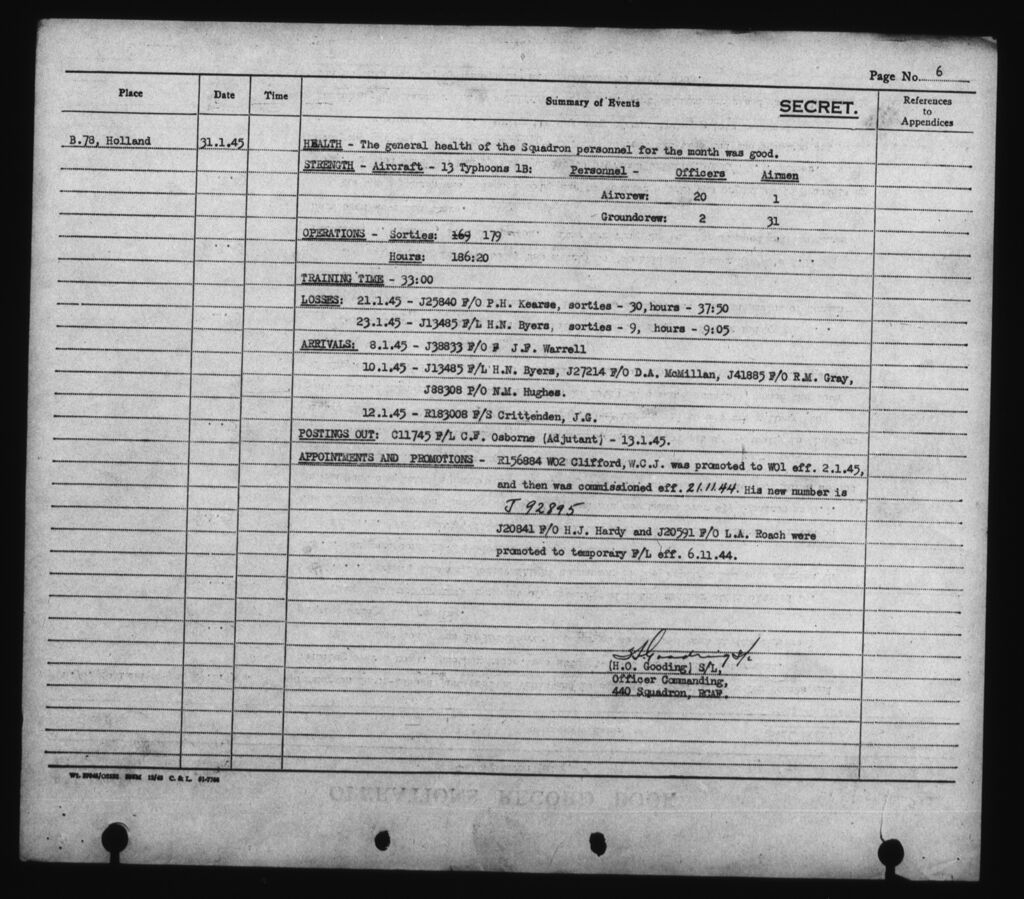 Page No. 6
Place Date Time Summary of Events SECRET. References to Appendices
B.78, Holland 31.1.45 HEALTH - The general health of the Squadron personnel for the month was good.
STRENGTH - Aircraft - 13 Typhoons 1B: Personnel - Officers Airmen
Aircrew: 20 1
Groundcrew: 2 31
OPERATIONS - Sorties: 169 179
Hours: 186:20
TRAINING TIME - 33:00
LOSSES: 21.1.45 - J25840 F/O P.H. Kearse, sorties - 30, hours - 37:50
23.1.45 - J13485 F/L H.N. Byers, sorties - 9, hours - 9:05
ARRIVALS: 8.1.45 - J38833 F/O F J.F. Warrell
10.1.45 - J13485 F/L H.N. Byers, J27214 F/O D.A. McMillan, J41885 F/O R.M. Gray,
J88308 P/O N.M. Hughes.
12.1.45 - R183008 F/S Crittenden, J.G.
POSTINGS OUT: C11745 F/L C.F. Osborne (Adjutant) - 13.1.45.
APPOINTMENTS AND PROMOTIONS - R156884 WO2 Clifford, W.C.J. was promoted to WO1 eff. 2.1.45,
and then was commissioned eff. 21.11.44. His new number is
J 92895
J20841 F/O H.J. Hardy and J20591 F/O L.A. Roach were
promoted to temporary F/L eff. 6.11.44.
(H.O. Gooding) S/L,
Officer Commanding,
440 Squadron, RCAF.
C. & L.
OPERATIONS RECORD BOOK